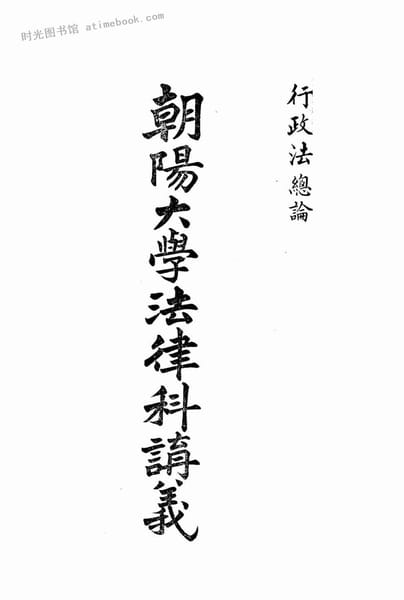 时光图书馆 atimebook.com
行政法總論
朝陽大學法律科講義